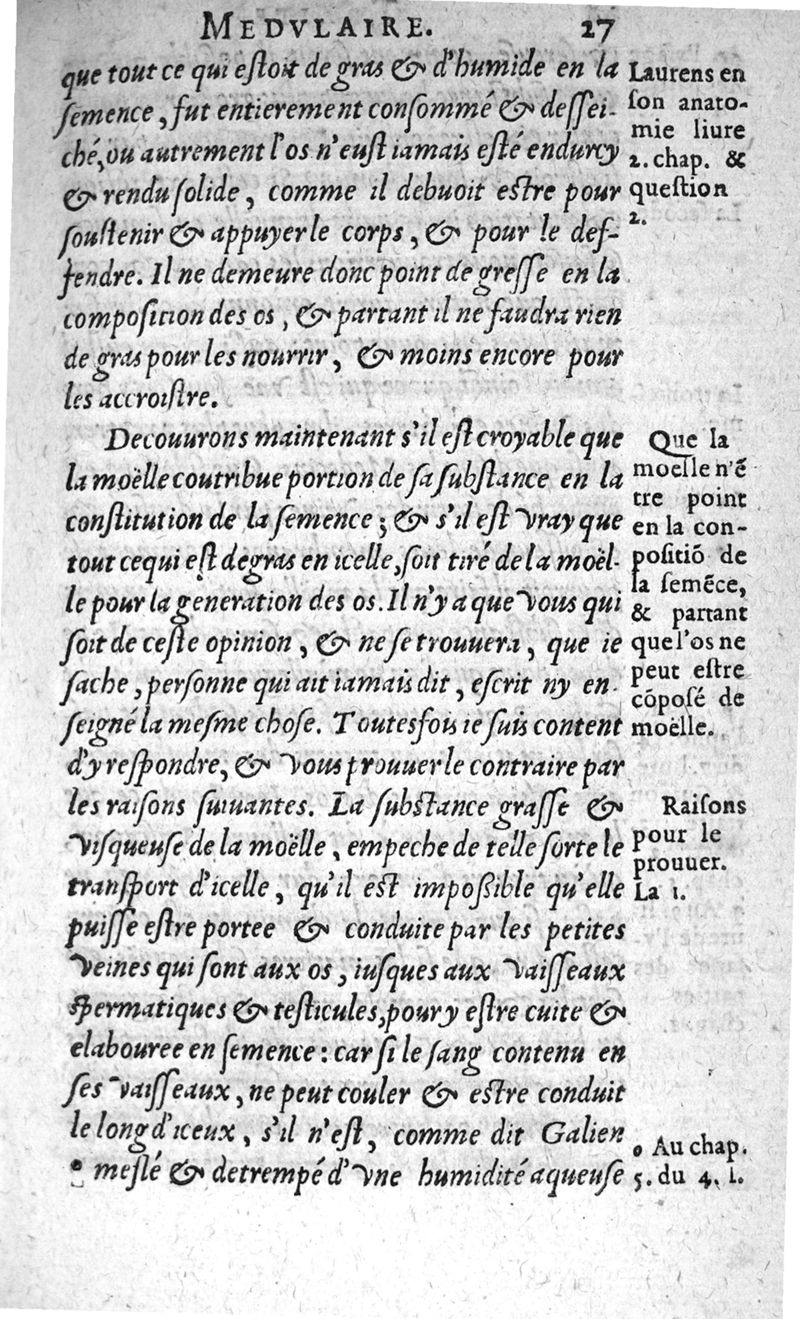 MEDVLAIRE. 27
que tout ce qui eſtoit de gras & d'humide en la
ſemence, fut entierement conſommé & deſſei-
ché, ou autrement l'os n'euſt iamais eſté endurcy
& rendu ſolide, comme il debuoit eſtre pour
ſouſtenir & appuyer le corps, & pour le def-
fendre. Il ne demeure donc point de greſſe en la
compoſition des os, & partant il ne faudra rien
de gras pour les nourrir, & moins encore pour
les accroiſtre.
Laurens en
ſon anato-
mie liure
2. chap. &
queſtion
2.
Decouurons maintenant s'il eſt croyable que
la moëlle coutribue portion de ſa ſubſtance en la
conſtitution de la ſemence; & s'il eſt vray que
tout cequi eſt degras en icelle, ſoit tiré de la moël-
le pour la generation des os. Il n'y a que vous qui
ſoit de ceſte opinion, & ne ſe trouuera, que ie
ſache, perſonne qui ait iamais dit, eſcrit ny en-
ſeigné la meſme choſe. Toutesfois ie ſuis content
d'y reſpondre, & vous prouuer le contraire par
les raiſons ſuiuantes. La ſubſtance graſſe &
viſqueuſe de la moëlle, empeche de telle ſorte le
tranſport d'icelle, qu'il eſt impoſſible qu'elle
puiſſe eſtre portee & conduite par les petites
veines qui ſont aux os, iuſques aux vaiſſeaux
ſpermatiques & teſticules, pour y eſtre cuite &
elabouree en ſemence: car ſi le ſang contenu en
ſes vaiſſeaux, ne peut couler & eſtre conduit
le long d'iceux, s'il n'eſt, comme dit Galien
meſlé & detrempé d'vne humidité aqueuſe
Que la
moelle n'ẽ
tre point
en la con-
poſitiõ de
la ſemẽce,
& partant
que l'os ne
peut eſtre
cõpoſé de
moëlle.
Raiſons
pour le
prouuer.
La 1.
Au chap.
5. du 4. l.